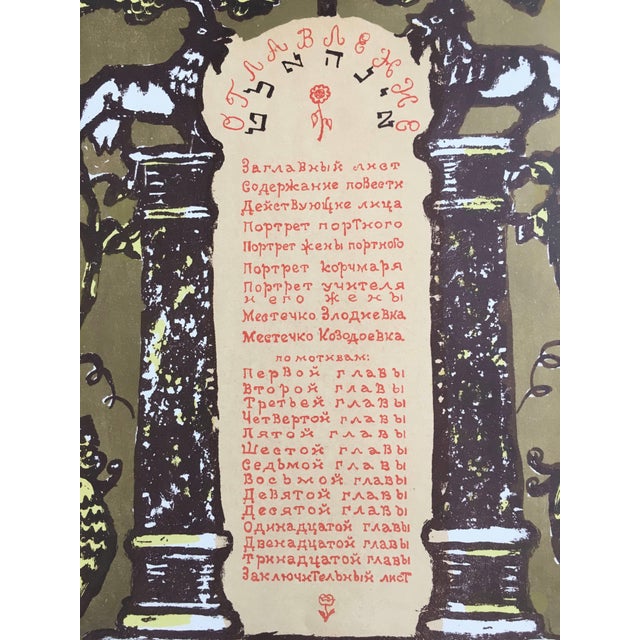 ОГЛАВЛЕНИЕ
Заглавный лист
Содержание повести
Действующие лица
Портрет портного
Портрет жены портного
Портрет корчмаря
Портрет учителя
и его жены
Местечко Злодиевка
Местечко Козодоевка
по мотивам:
Первой главы
Второй главы
Третьей главы
Четвертой главы
Пятой главы
Шестой главы
Седьмой главы
Восьмой главы
Девятой главы
Десятой главы
Одинадцатой главы
Двенадцатой главы
Тринадцатой главы
Заключительный лист